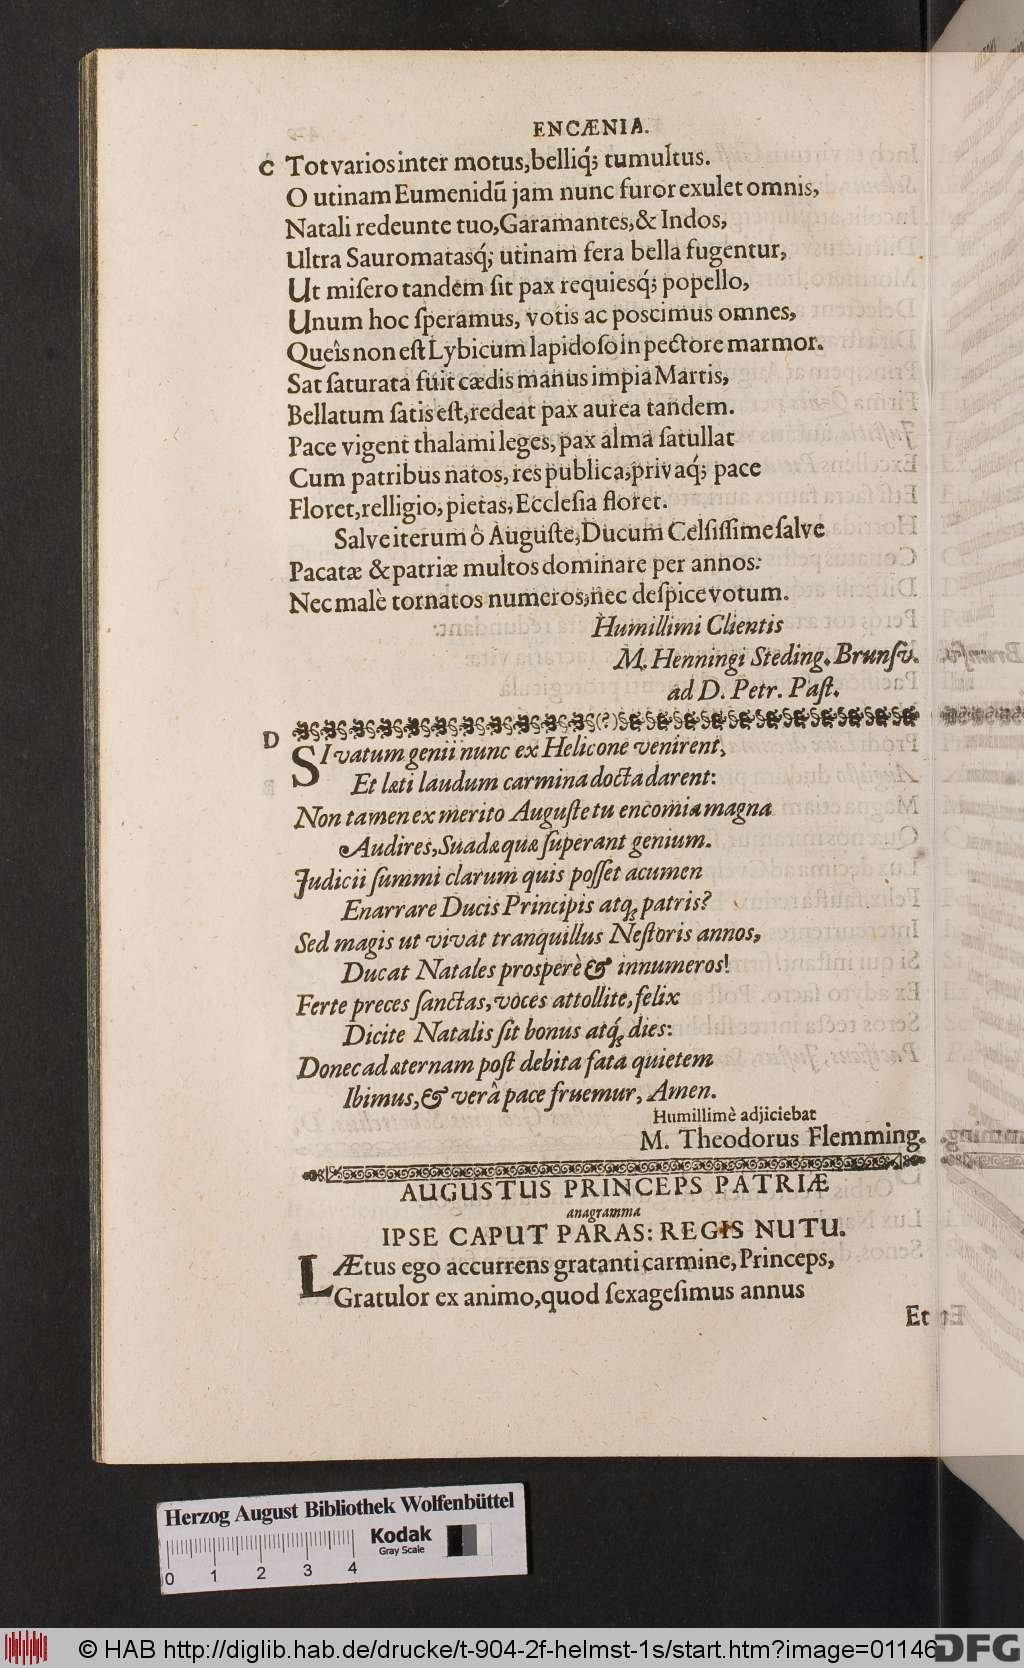 ENCÆNIA.
C Tot varios inter motus, belliq́; tumultus.
O utinam Eumenidũ jam nunc furor exulet omnis,
Natali redeunte tuo, Garamantes, & Indos,
Ultra Sauromatasq́; utinam fera bella fugentur,
Ut miſero tandem ſit pax requiesq́; popello,
Unum hoc ſperamus, votis ac poscimus omnes,
Queîs non eſt Lybicum lapidoſo in pectore marmor.
Sat ſaturata fuit cædis manus impia Martis,
Bellatum ſatis eſt, redeat pax aurea tandem.
Pace vigent thalami leges, pax alma ſatullat
Cum patribus natos, res publica, privaq́; pace
Floret, relligio, pietas, Eccleſia floret.
Salve iterum ô Auguſte, Ducum Celſiſſime ſalve
Pacatæ & patriæ multos dominare per annos:
Nec malè tornatos numeros, nec deſpice votum.
Humillimi Clientis
M. Henningi Steding. Brunſv.
ad D. Petr. Paſt.
(?)
D SI vatum genii nunc ex Helicone venirent,
Et læti laudum carmina docta darent:
Non tamen ex merito Auguſte tu encomia magna
Audires, Suadæ quæ ſuperant genium.
Judicii ſummi clarum quis poſſet acumen
Enarrare Ducis Principis atq; patris?
Sed magis ut vivat tranquillus Neſtoris annos,
Ducat Natales prosperè & innumeros!
Ferte preces ſanctas, voces attollite, felix
Dicite Natalis ſit bonus atq́; dies:
Donec ad æternam poſt debita fata quietem
Ibimus, & verâ pace fruemur, Amen.
Humillimè adjiciebat
M. Theodorus Flemming.
AUGUSTUS PRINCEPS PATRIÆ
anagramma
IPSE CAPUT PARAS: REGIS NUTU.
LÆtus ego accurrens gratanti carmine, Princeps,
Gratulor ex animo, quod ſexageſimus annus
Et
Herzog August Bibliothek Wolfenbüttel
Kodak
Gray Scale
0 1 2 3 4
© HAB http://diglib.hab.de/drucke/t-904-2f-helmst-1s/start.htm?image=01146
DFG